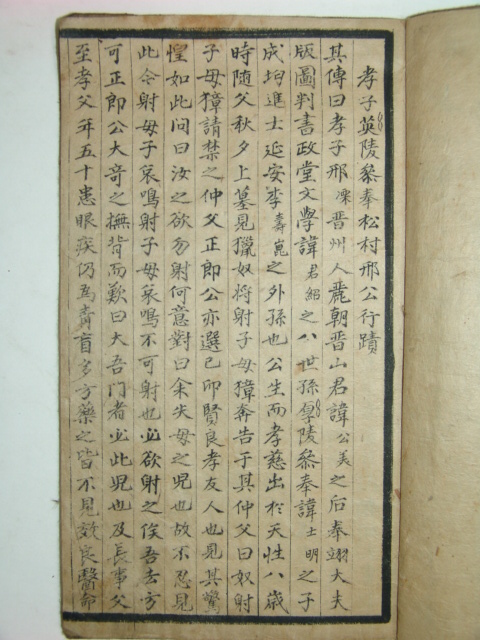 孝子英陵叅奉松村邢公行蹟
其傳曰孝子邢溁晋州人麗朝晋山君諱公美之后奉翊大夫
版圖判書政堂文學諱君紹之八世孫厚陵叅奉諱士明之子
成均進士延安李壽崑之外孫也公生而孝慈出於天性八歲
時随父秋夕上墓見獵奴將射子母獐奔告于其仲父曰奴射
子母獐請禁之仲父正郎公亦選己卯賢良孝友人也見其驚
惶如此問曰汝之欲勿射何意對曰余失母之児也故不忍見
此令射母子哀鳴射子母哀鳴不可射也必欲射之俟吾去方
可正郎公大奇之撫背而歎曰大吾門者必此児也及長事父
至孝父年五十患眼疾仍爲靑盲多方藥之皆不見效良醫命